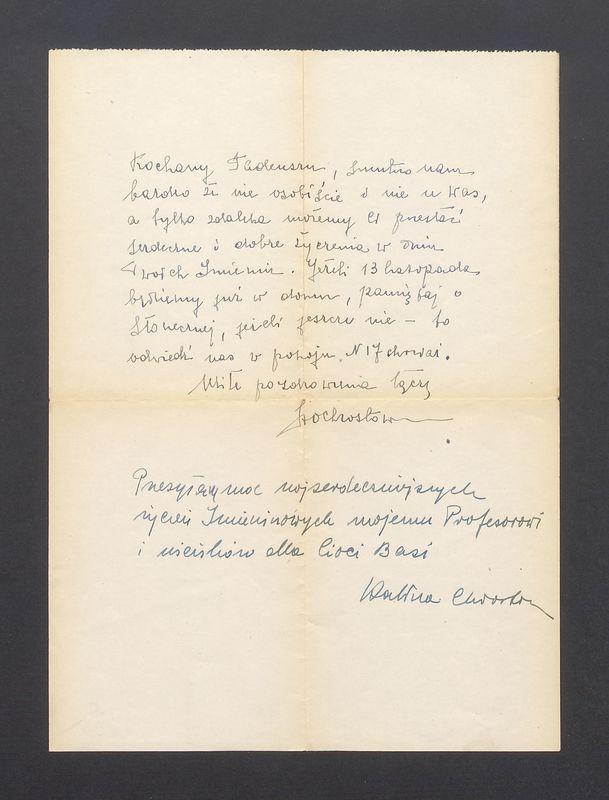 Kochany Tadeuszu, smutno nam
bardzo że nie osobiście i nie u Was,
a tylko zdaleka możemy Ci przesłać
serdeczne i dobre życzenia w dniu
Twoich Imienin. Jeżeli 13 listopada
będziemy już w domu, pamiętaj o
Słonecznej, jeżeli jeszcze nie – to
odwiedź nas w pokoju N 17
Miłe pozdrowienia łączę
Przesyłam moc najserdeczniejszych
życzeń Imieninowych mojemu Profesorowi
i uścisków dla Cioci Basi
Halina